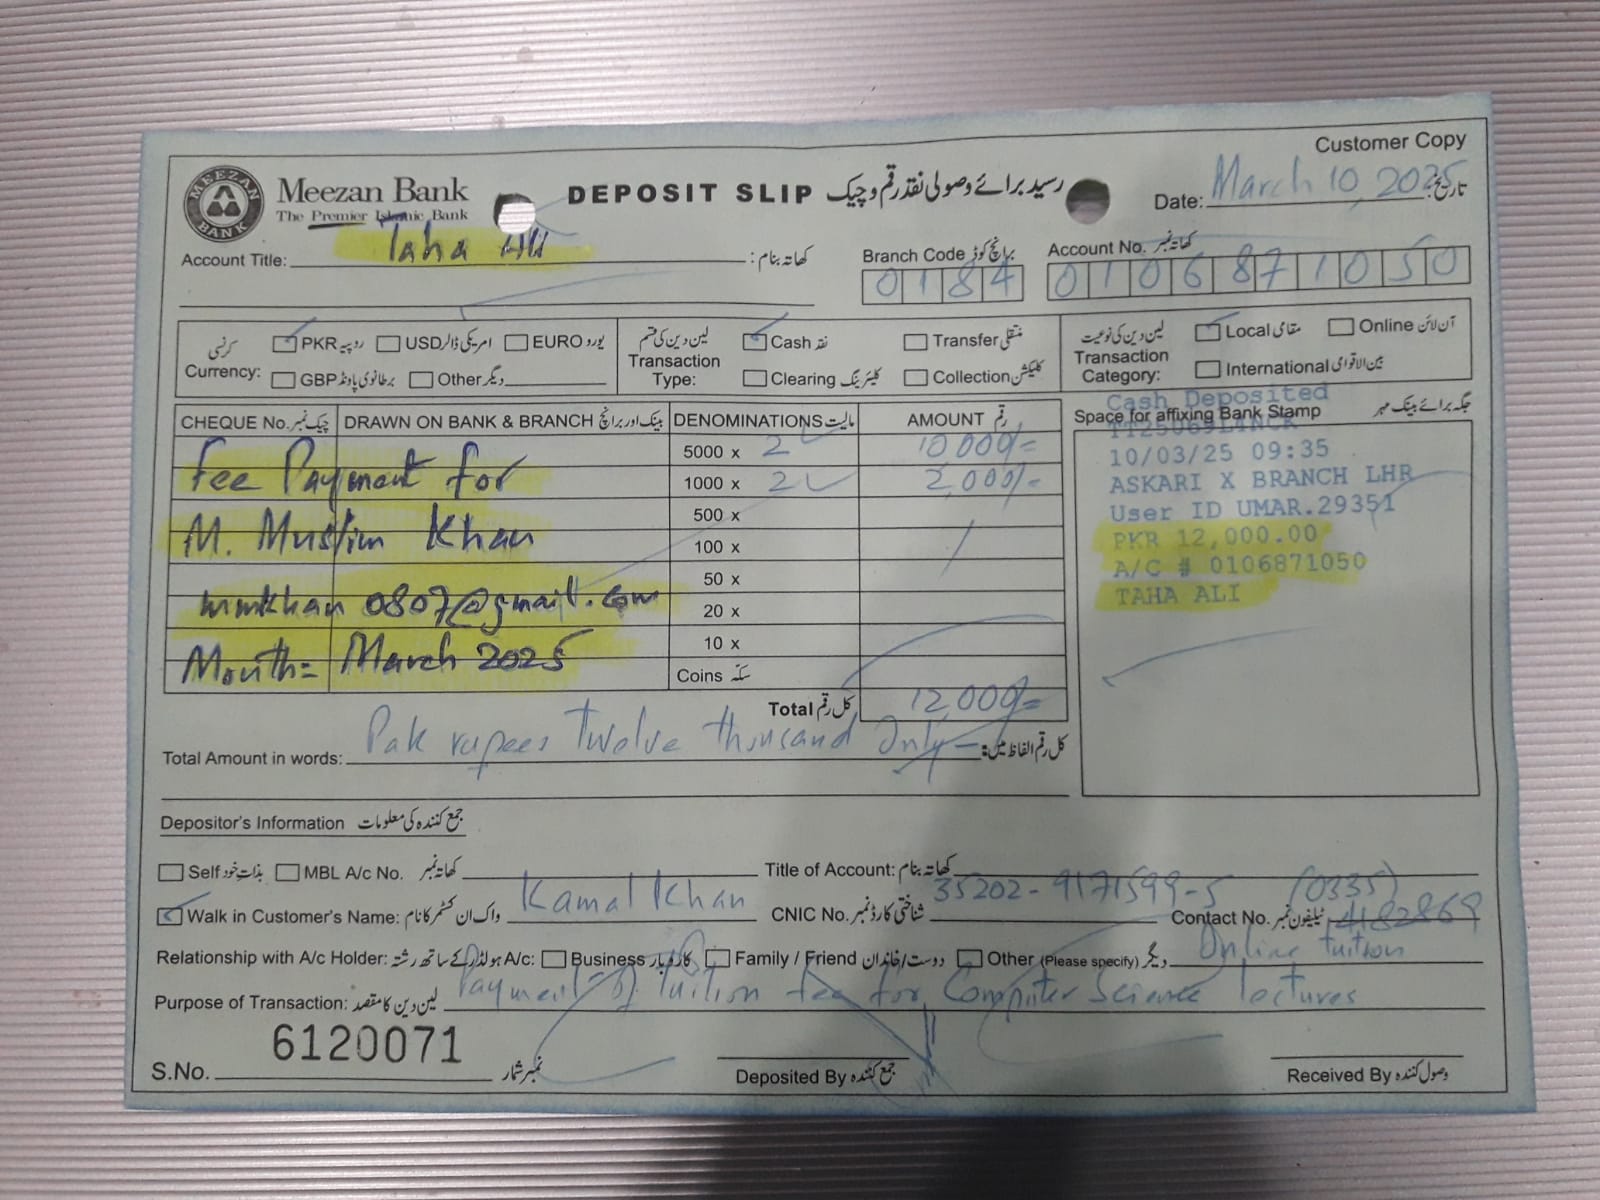 Customer Copy
MEEZAN BANK
Meezan Bank
The Premier Islamic Bank
DEPOSIT SLIP رسید برائے وصولی نقد رقم و چیک
Date: March 10, 2025 تاریخ:
Account Title: Taha Ali کھاتہ بنام:
Branch Code برانچ کوڈ 0184
Account No. کھاتہ نمبر 0106871050
Currency: کرنسی
PKR روپیہ USD امریکی ڈالر EURO یورو
GBP برطانوی پاونڈ Other دیگر
Transaction Type: لین دین کی قسم
Cash نقد Transfer منتقلی
Clearing کلیئرنگ Collection کلیکشن
Transaction Category: لین دین کی نوعیت
Local مقامی Online آن لائن
International بین الاقوامی
CHEQUE No. چیک نمبر DRAWN ON BANK & BRANCH بینک اور برانچ DENOMINATIONS مالیت AMOUNT رقم
5000 x 2 10,000/=
1000 x 2 2,000/=
500 x
100 x
50 x
20 x
10 x
Coins سکہ
Total کل رقم 12,000/=
Fee Payment for
M. Muslim Khan
mmkhan0807@gmail.com
Month= March 2025
Space for affixing Bank Stamp جگہ برائے بینک مہر
Cash Deposited
10/03/25 09:35
ASKARI X BRANCH LHR
User ID UMAR.29351
PKR 12,000.00
A/C # 0106871050
TAHA ALI
Total Amount in words: Pak rupees Twelve thousand Only — کل رقم الفاظ میں:
Depositor's Information جمع کنندہ کی معلومات
Self بذات خود MBL A/c No. کھاتہ نمبر Title of Account: کھاتہ بنام:
Walk in Customer's Name: واک ان کسٹمر کا نام: Kamal Khan CNIC No. شناختی کارڈ نمبر 35202-9171599-5 Contact No. ٹیلیفون نمبر (0335) 4182869
Relationship with A/c Holder: اکاؤنٹ ہولڈر کے ساتھ رشتہ A/c: Business کاروبار Family / Friend دوست/خاندان Other (Please specify) دیگر Online tuition
Purpose of Transaction: لین دین کا مقصد: Payment of Tuition fee for Computer Science lectures
S.No. 6120071 نمبر شمار
Deposited By جمع کنندہ
Received By وصول کنندہ